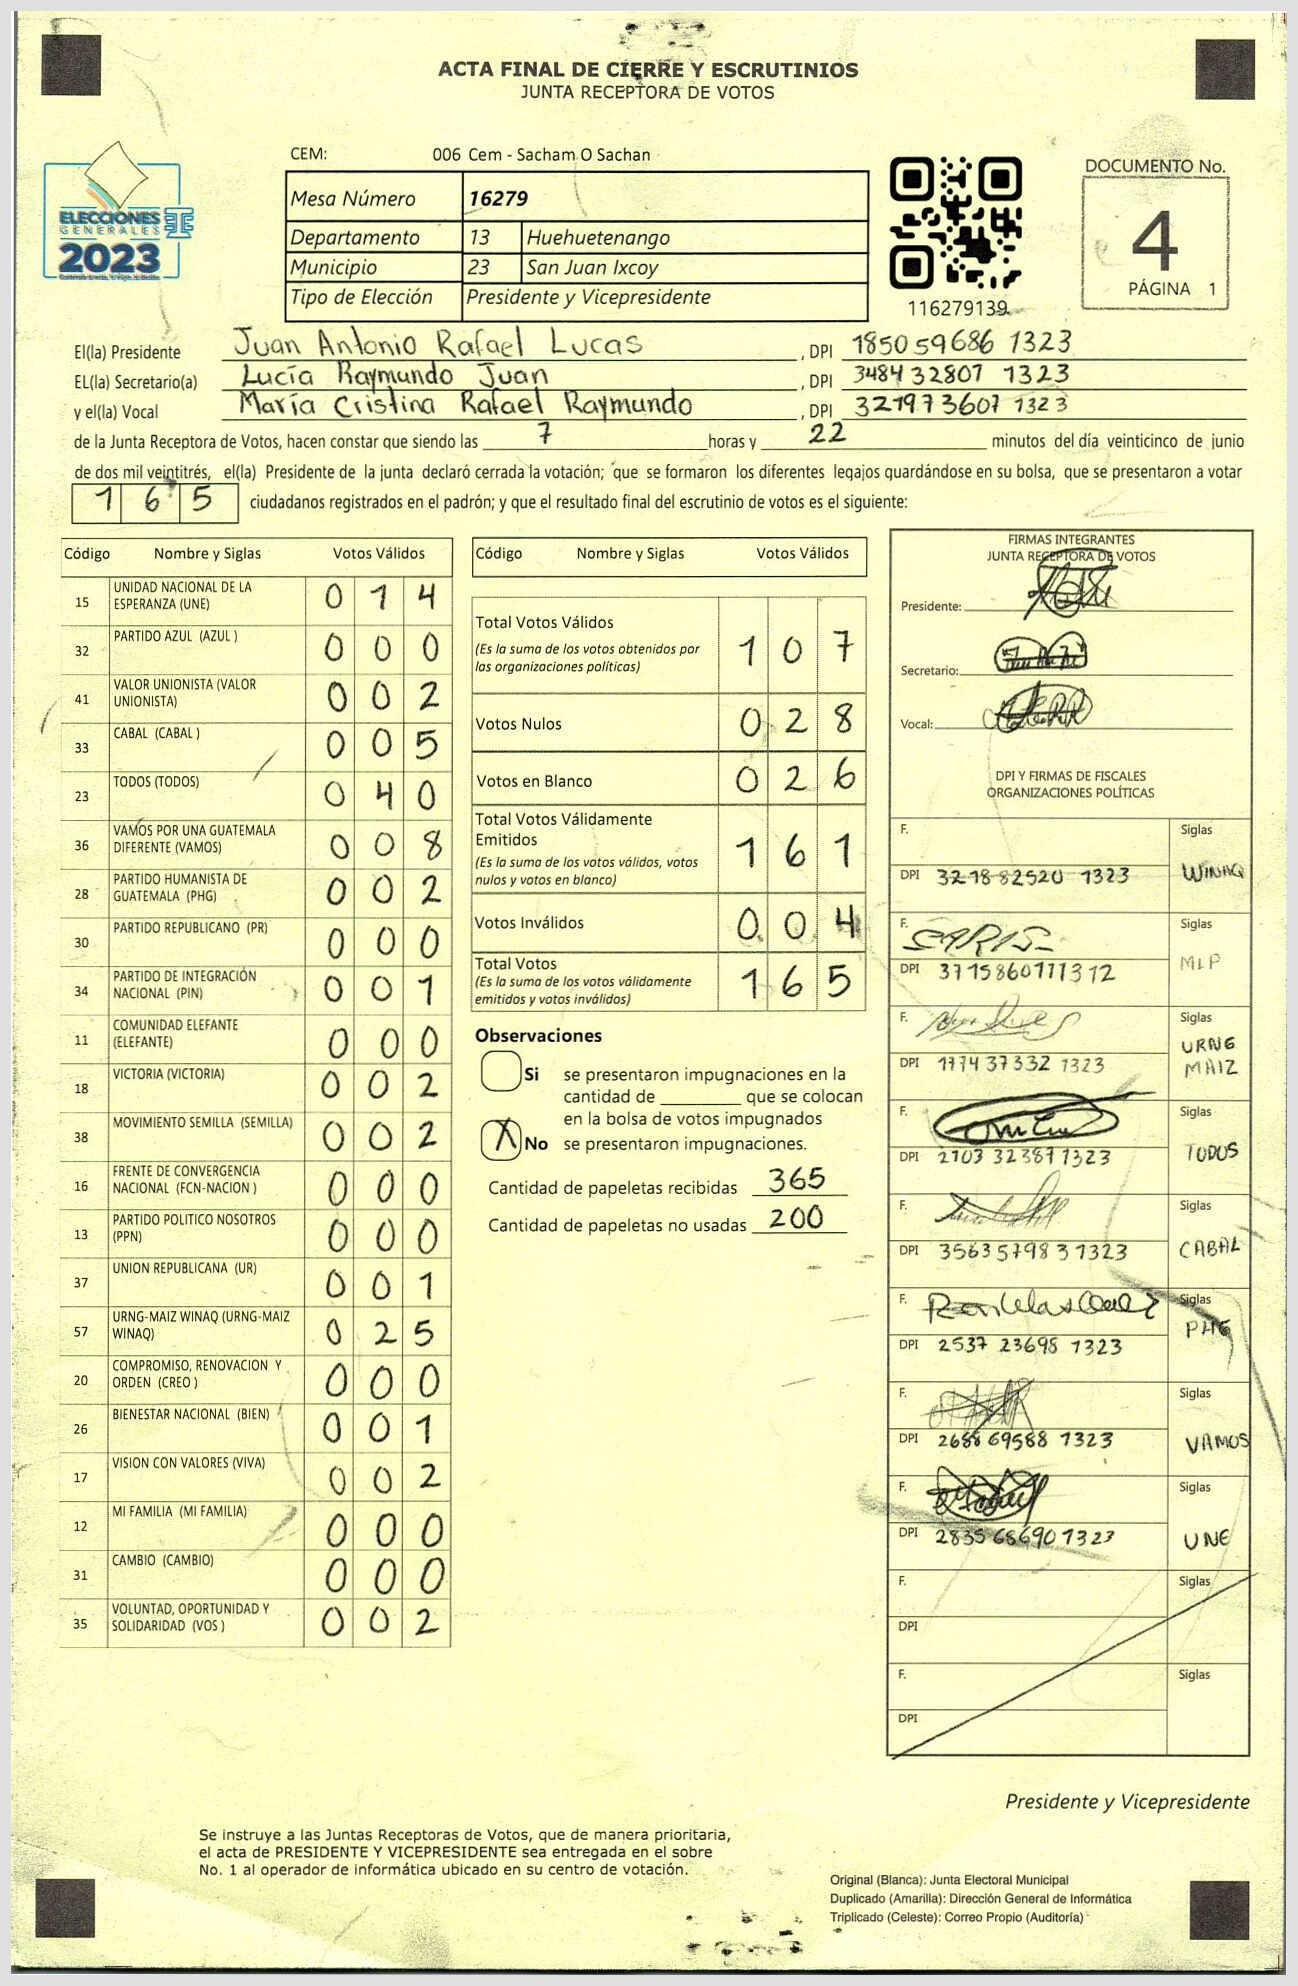 ACTA FINAL DE CIERRE Y ESCRUTINIOS
JUNTA RECEPTORA DE VOTOS
CEM: 006 Cem - Sacham O Sachan
ELECCIONES
GENERALES
2023
Mesa Número 16279
Departamento 13 Huehuetenango
Municipio 23 San Juan Ixcoy
Tipo de Elección Presidente y Vicepresidente
116279139
DOCUMENTO No.
4
PÁGINA 1
El(la) Presidente Juan Antonio Rafael Lucas , DPI 185059686 1323
EL(la) Secretario(a) Lucía Raymundo Juan , DPI 3484 32807 1323
y el(la) Vocal María Cristina Rafael Raymundo , DPI 321973607 1323
de la Junta Receptora de Votos, hacen constar que siendo las 7 horas y 22 minutos del día veinticinco de junio
de dos mil veintitrés, el(la) Presidente de la junta declaró cerrada la votación; que se formaron los diferentes legajos guardándose en su bolsa, que se presentaron a votar
165 ciudadanos registrados en el padrón; y que el resultado final del escrutinio de votos es el siguiente:
Código Nombre y Siglas Votos Válidos
15 UNIDAD NACIONAL DE LA ESPERANZA (UNE) 0 1 4
32 PARTIDO AZUL (AZUL ) 0 0 0
41 VALOR UNIONISTA (VALOR UNIONISTA) 0 0 2
33 CABAL (CABAL ) 0 0 5
23 TODOS (TODOS) 0 4 0
36 VAMOS POR UNA GUATEMALA DIFERENTE (VAMOS) 0 0 8
28 PARTIDO HUMANISTA DE GUATEMALA (PHG) 0 0 2
30 PARTIDO REPUBLICANO (PR) 0 0 0
34 PARTIDO DE INTEGRACIÓN NACIONAL (PIN) 0 0 1
11 COMUNIDAD ELEFANTE (ELEFANTE) 0 0 0
18 VICTORIA (VICTORIA) 0 0 2
38 MOVIMIENTO SEMILLA (SEMILLA) 0 0 2
16 FRENTE DE CONVERGENCIA NACIONAL (FCN-NACION ) 0 0 0
13 PARTIDO POLITICO NOSOTROS (PPN) 0 0 0
37 UNION REPUBLICANA (UR) 0 0 1
57 URNG-MAIZ WINAQ (URNG-MAIZ WINAQ) 0 2 5
20 COMPROMISO, RENOVACION Y ORDEN (CREO ) 0 0 0
26 BIENESTAR NACIONAL (BIEN) 0 0 1
17 VISION CON VALORES (VIVA) 0 0 2
12 MI FAMILIA (MI FAMILIA) 0 0 0
31 CAMBIO (CAMBIO) 0 0 0
35 VOLUNTAD, OPORTUNIDAD Y SOLIDARIDAD (VOS ) 0 0 2
Código Nombre y Siglas Votos Válidos
Total Votos Válidos 1 0 7
(Es la suma de los votos obtenidos por
las organizaciones políticas)
Votos Nulos 0 2 8
Votos en Blanco 0 2 6
Total Votos Válidamente
Emitidos 1 6 1
(Es la suma de los votos válidos, votos
nulos y votos en blanco)
Votos Inválidos 0 0 4
Total Votos 1 6 5
(Es la suma de los votos válidamente
emitidos y votos inválidos)
Observaciones
Si se presentaron impugnaciones en la
cantidad de ________ que se colocan
en la bolsa de votos impugnados
X No se presentaron impugnaciones.
Cantidad de papeletas recibidas 365
Cantidad de papeletas no usadas 200
FIRMAS INTEGRANTES
JUNTA RECEPTORA DE VOTOS
Presidente:
Secretario:
Vocal:
DPI Y FIRMAS DE FISCALES
ORGANIZACIONES POLÍTICAS
F. Siglas
DPI 3218 82520 1323 WINAQ
F. Siglas
DPI 3715860111312 MLP
F. Siglas
DPI 1774 37332 1323 URNG MAIZ
F. Siglas
DPI 2103 32387 1323 TODOS
F. Siglas
DPI 356357983 1323 CABAL
F. Siglas
DPI 2537 23698 1323 PHG
F. Siglas
DPI 2688 69588 1323 VAMOS
F. Siglas
DPI 2835 68690 1323 UNE
F. Siglas
DPI
F. Siglas
DPI
Presidente y Vicepresidente
Se instruye a las Juntas Receptoras de Votos, que de manera prioritaria,
el acta de PRESIDENTE Y VICEPRESIDENTE sea entregada en el sobre
No. 1 al operador de informática ubicado en su centro de votación.
Original (Blanca): Junta Electoral Municipal
Duplicado (Amarilla): Dirección General de Informática
Triplicado (Celeste): Correo Propio (Auditoría)